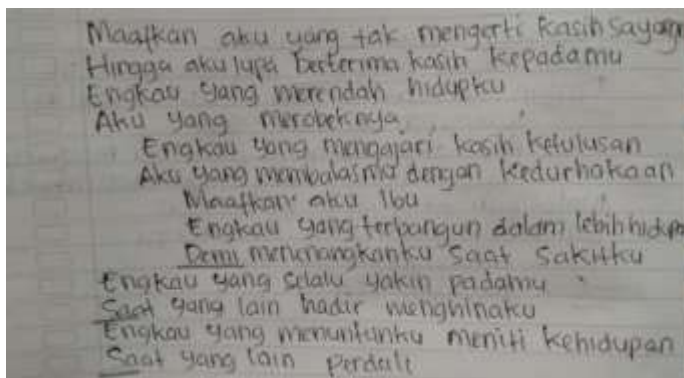 Maafkan aku yang tak mengerti kasih sayang
Hingga aku lupa berterima kasih kepadamu
Engkau yang merendah hidupku
Aku yang merobeknya
Engkau yang mengajari kasih ketulusan
Aku yang membalasmu dengan kedurhakaan
Maafkan aku Ibu
Engkau yang terbangun dalam lebih
Demi menenangkanku saat sakitku
Engkau yang selalu yakin padamu
Saat yang lain hadir menghinaku
Engkau yang menuntunku meniti kehidupan
Saat yang lain perduli